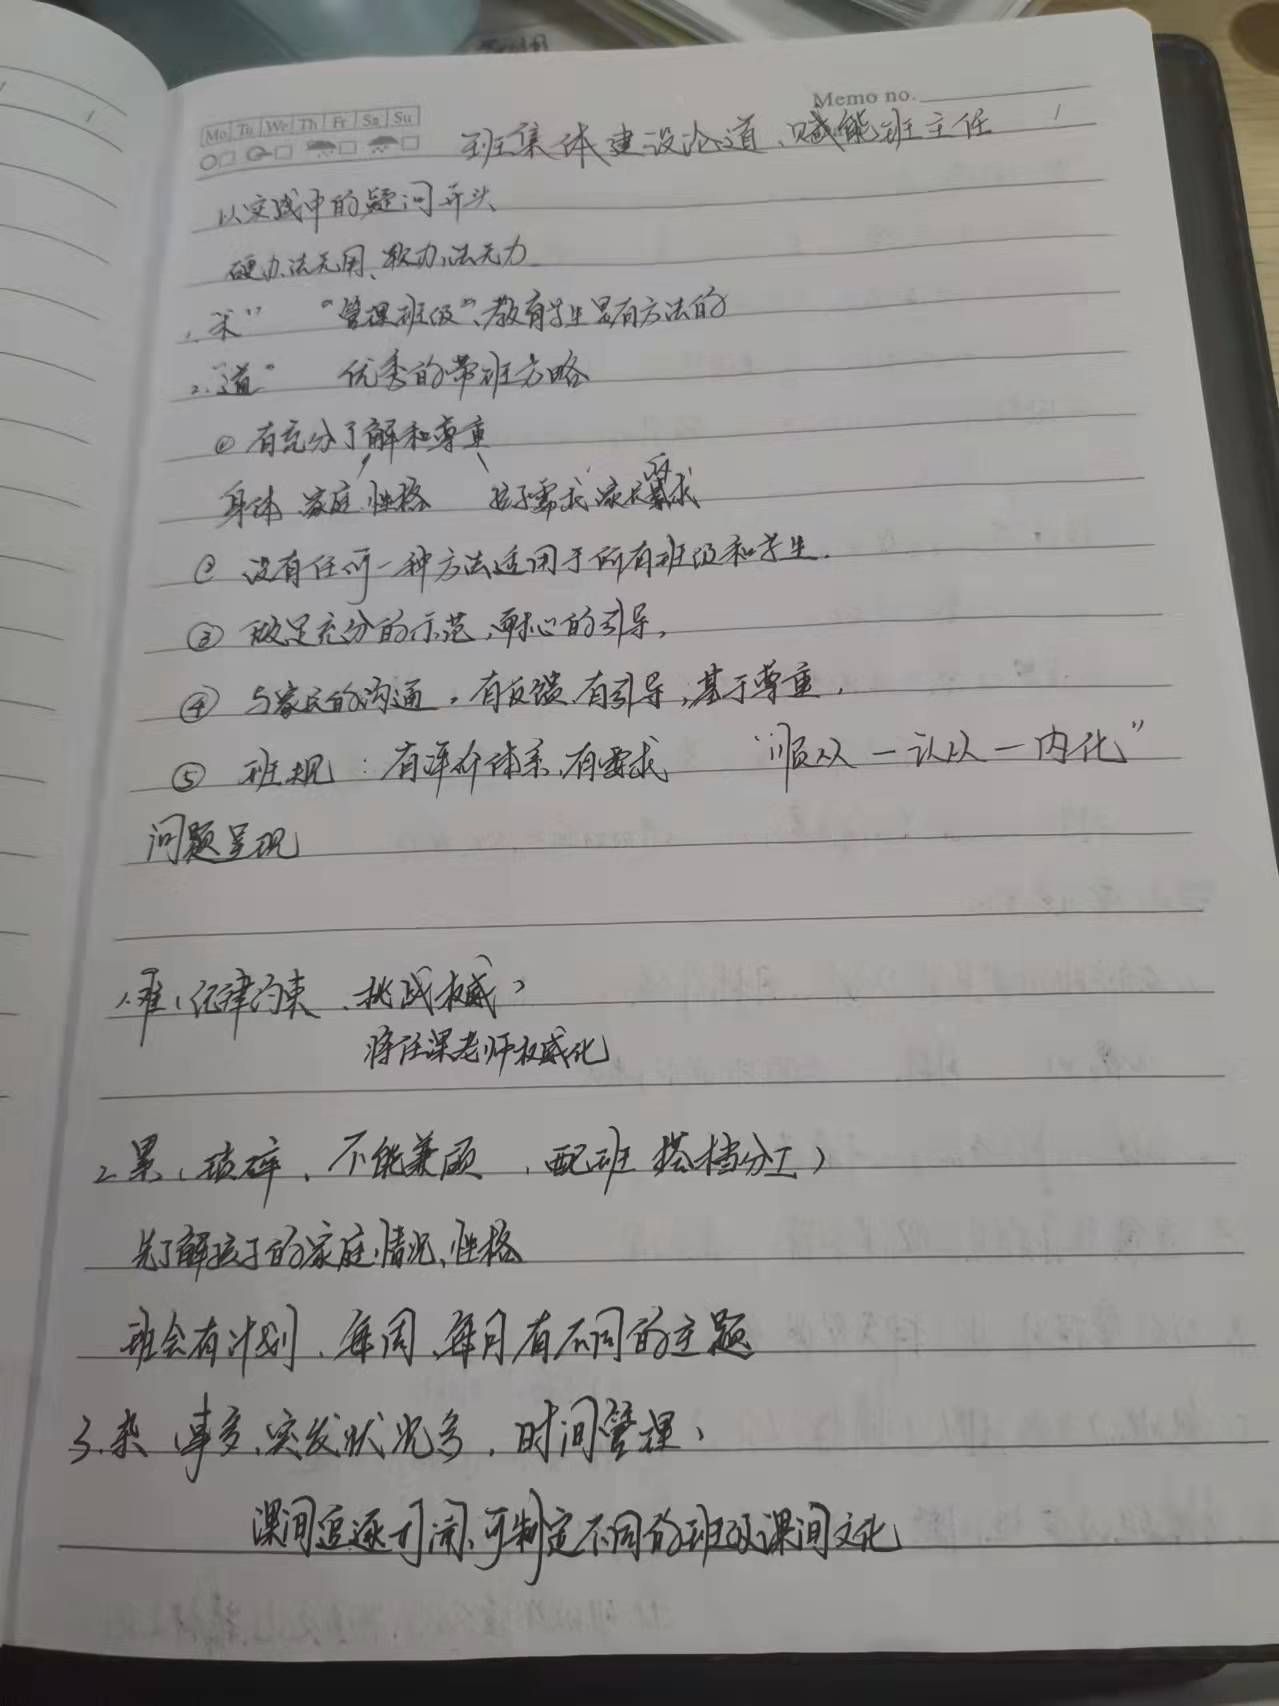 Memo no.
Mo Tu We Th Fr Sa Su
班集体建设论道、赋能班主任
以实践中的疑问开头
硬办法无用、软办法无力
1. 术" "管理班级"、教育学生是有方法的
2. "道" 优秀的带班方略
① 有充分了解和尊重
身体 家庭 性格 孩子需求 家长需求
② 没有任何一种方法适用于所有班级和学生.
③ 做足充分的示范,耐心的引导,
④ 与家长的沟通,有反馈.有引导,基于尊重.
⑤ 班规:有评价体系,有要求 "顺从—认从—内化"
问题呈现
1. 难(纪律约束、挑战权威)
将任课老师权威化
2. 累(琐碎、不能兼顾、配班 搭档分工)
先了解孩子的家庭情况、性格
班会有计划、每周、每月有不同的主题
3. 杂(事多、突发状况多,时间管理、
课间追逐打闹、可制定不同的班级课间文化